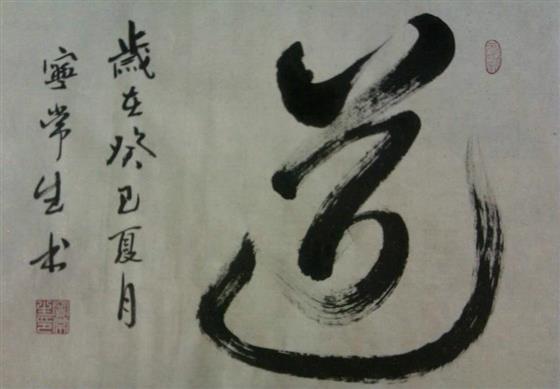 道
歲在癸巳夏月
寧常生书